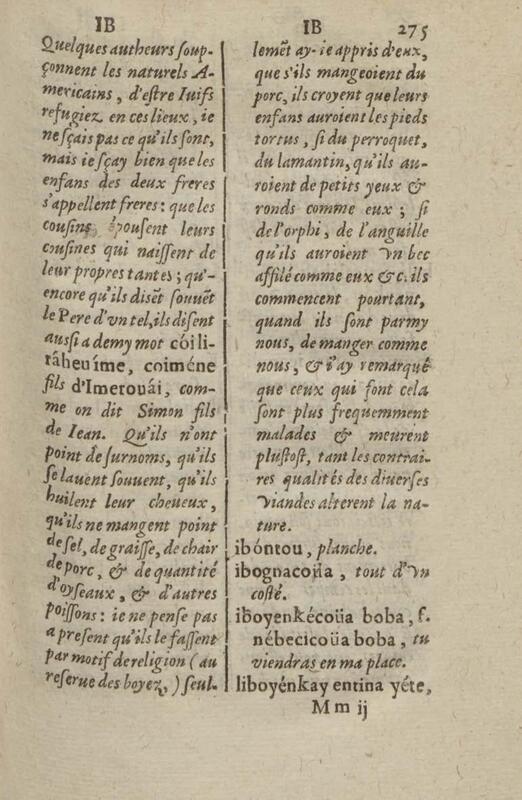 IB
Quelques autheurs ſoup-
çonnent les naturels A-
mericains, d'eſtre Iuifs
refugiez en ces lieux, ie
ne ſçais pas ce qu'ils ſont,
mais ie ſçay bien que les
enfans des deux freres
s'appellent freres: que les
couſins épouſent leurs
couſines qui naiſſent de
leur propres tantes; qu'-
encore qu'ils diſẽt ſouuẽt
le Pere d'vn tel, ils diſent
auſſi a demy mot cóili-
râheuíme, coiméne
fils d'Imerouái, com-
me on dit Simon fils
de Iean. Qu'ils n'ont
point de ſurnoms, qu'ils
ſe lauent ſouuent, qu'ils
huilent leur cheueux,
qu'ils ne mangent point
de ſel, de graiſſe, de chair
de porc, & de quantité
d'oyſeaux, & d'autres
poiſſons: ie ne penſe pas
a preſent qu'ils le faſſent
par motif de religion (au
reſerue des boyez,) ſeul-
IB 275
lemẽt ay-ie appris d'eux,
que s'ils mangeoient du
porc, ils croyent que leurs
enfans auroient les pieds
tortus, ſi du perroquet,
du lamantin, qu'ils au-
roient de petits yeux &
ronds comme eux; ſi
de l'orphi, de l'anguille
qu'ils auroient vn bec
affilé comme eux &c. ils
commencent pourtant,
quand ils ſont parmy
nous, de manger comme
nous, & i'ay remarqué
que ceux qui font cela
ſont plus frequemment
malades & meurent
pluſtoſt, tant les contrai-
res qualités des diuerſes
viandes alterent la na-
ture.
ibóntou, planche.
ibognacoüa, tout d'vn
coſté.
iboyenkécoüa boba, f.
nébecicoüa boba, tu
viendras en ma place.
liboyénkay entina yéte,
Mm ij